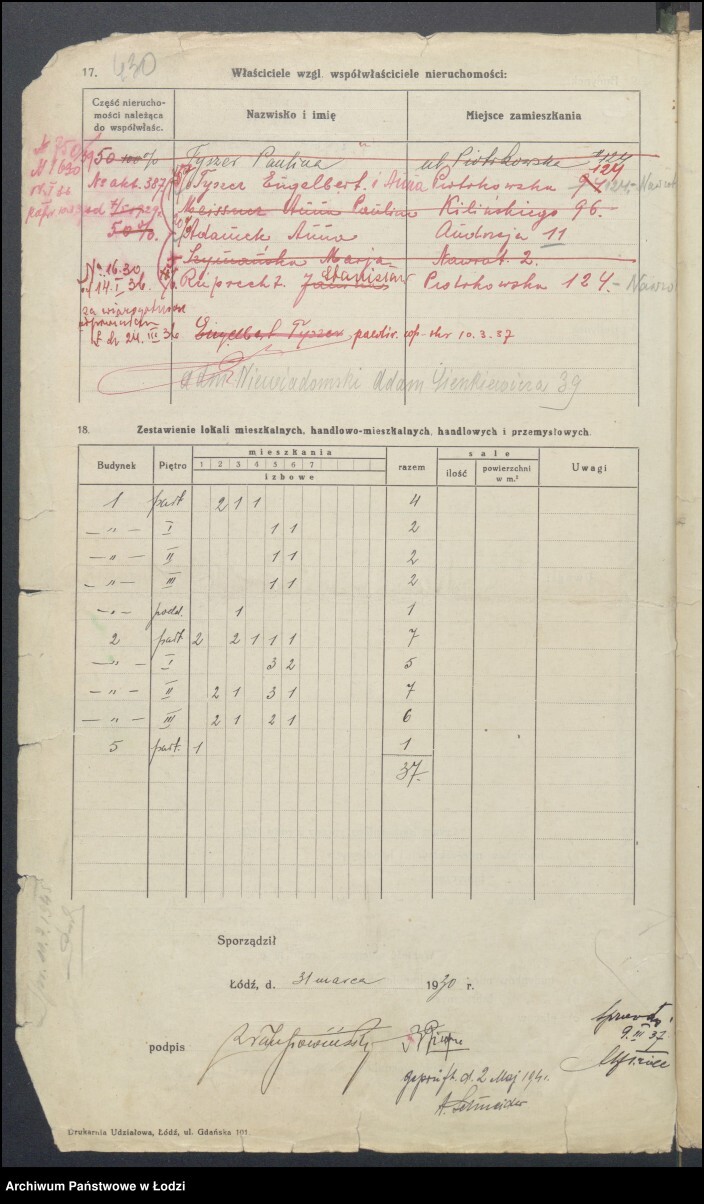 17. 430 Właściciele wzgl. współwłaściciele nieruchomości:
Część nierucho-
mości należąca
do współwłaśc.
Nazwisko i imię
Miejsce zamieszkania
50 100% Tyszer Paulina ul. Piotrkowska 124
124
No akt. 387 Tyszer Engelbert i Anna Piotrkowska 124 - Nawrot
Meissner Anna Paulina Kilińskiego 96.
50%. Adamek Anna Andrzeja 11
Szymańska Marja Nawrot 2.
No 16.30 Stanisław
14.I 36. Ruprecht Piotrkowska 124. - Nawro
24. III 36 Engelbert Tyszer 10.3.37
Niewiadomski Adam Sienkiewicza 39
18. Zestawienie lokali mieszkalnych, handlowo-mieszkalnych, handlowych i przemysłowych.
Budynek Piętro mieszkania razem sale Uwagi
1 2 3 4 5 6 7
izbowe
ilość powierzchni w m.²
1 part 2 1 1 4
— „ — I 1 1 2
— „ — II 1 1 2
— „ — III 1 1 2
— „ — podd. 1 1
2 part 2 2 1 1 1 7
— „ — I 3 2 5
— „ — II 2 1 3 1 7
— „ — III 2 1 2 1 6
5 part. 1 1
37.
Sporządził
Łódź, d. 31 marca 1930 r.
podpis
9.III 37
geprüft d. 2 Maj 1941.
A. Schneider
Drukarnia Udziałowa, Łódź, ul. Gdańska 101.
Archiwum Państwowe w Łodzi